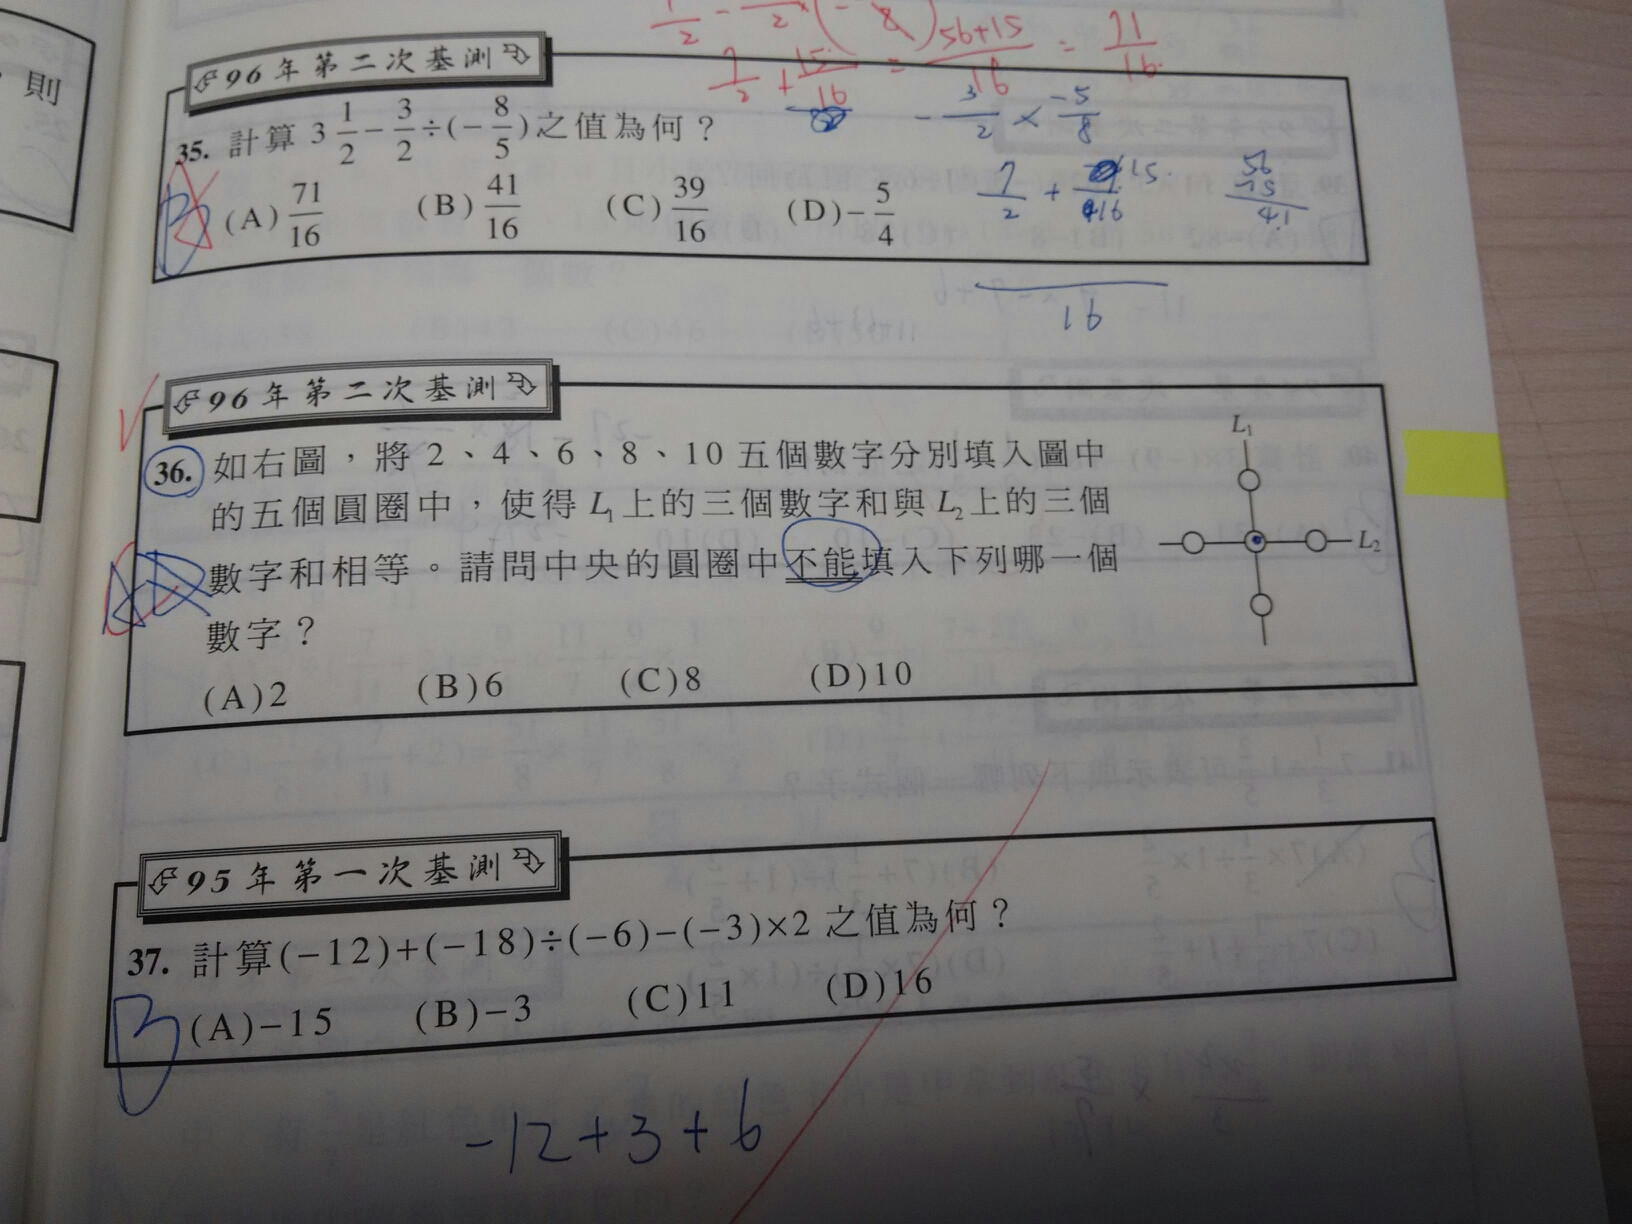 則
96年第二次基測
35. 計算 3 1/2 − 3/2 ÷(− 8/5)之值為何？
(A) 71/16 (B) 41/16 (C) 39/16 (D)− 5/4
56+15/16 = 71/16
7/2 + 15/16
− 3/2 × −5/8
7/2 + 15/16
56
15
41
16
B
96年第二次基測
36. 如右圖，將 2、4、6、8、10 五個數字分別填入圖中
的五個圓圈中，使得 L₁上的三個數字和與 L₂上的三個
數字和相等。請問中央的圓圈中不能填入下列哪一個
數字？
(A)2 (B)6 (C)8 (D)10
L₁
L₂
95年第一次基測
37. 計算(−12)+(−18)÷(−6)−(−3)×2 之值為何？
(A)−15 (B)−3 (C)11 (D)16
B
−12+3+6